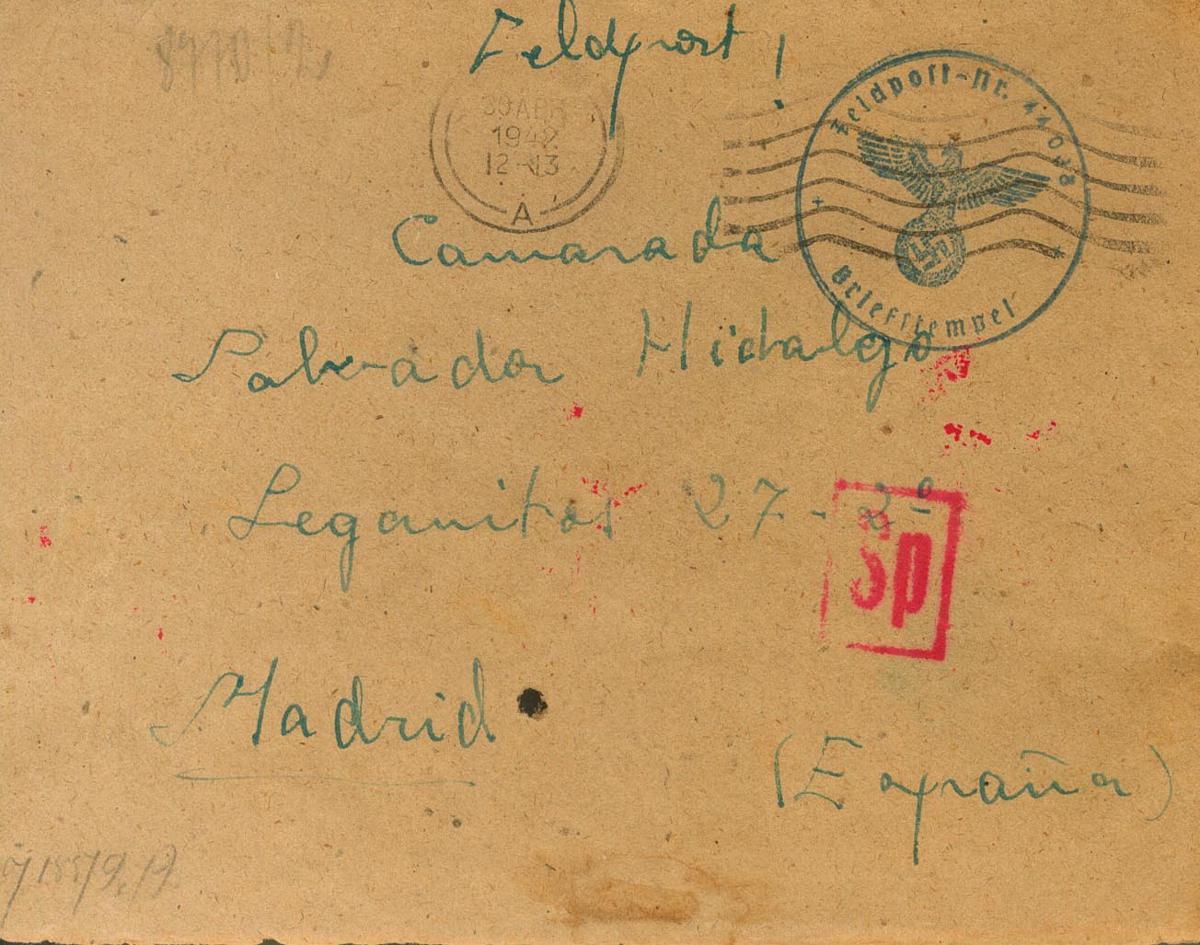 Feldpost!
30 APR
1942
12-13
A
Feldpost-Nr.
Briefstempel
Camarada
Salvador Hidalgo
Leganitos 27-2º
Sp
Madrid
(España)